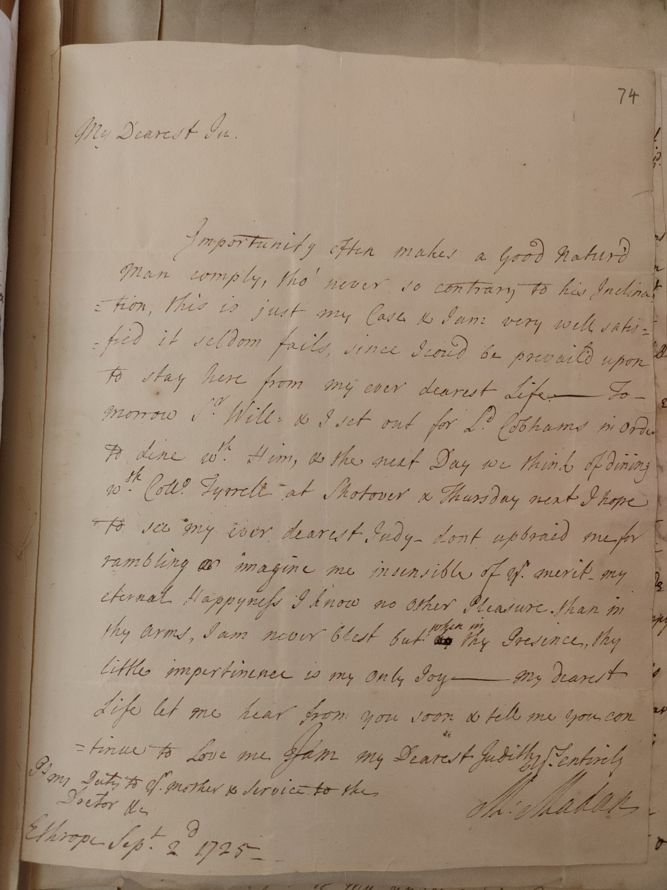 74
My Dearest Ju.
Importunity often makes a Good Natur'd
Man comply, tho' never so contrary to his Inclina
=tion, this is just my Case & I am very well satis=
=fied it seldom fails, since I cou'd be prevail'd upon
to stay here from my ever dearest Life — To-
morrow Sr. Will= & I set out for Ld Cobhams in Orde
to dine wth. Him, & the next Day we think of dining
wth Collo. Tyrrell at Shotover & Thursday next I hope
to see my ever dearest Judy — dont upbraid me for
rambling or imagine me insensible of yr. merit — my
eternal Happyness I know no other Pleasure than in
thy Arms, I am never blest but when in thy Presence, thy
little impertinence is my only Joy — my dearest
Life let me hear from you soon & tell me you con
=tinue to Love me I am my Dearest Judith yrs. entirely
Ps my Duty to yr. mother & service to the
Doctor &c
Madan
Ethrope Sept. 2d 1725 —